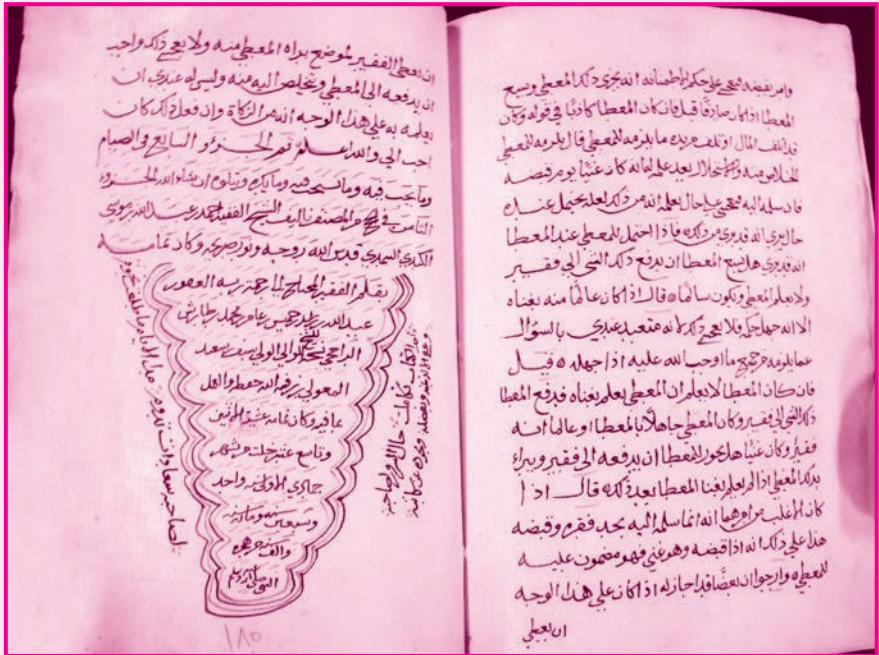 وامر بقبضه فمعي على حكم الاطمئنانه انه يجزي ذلك المعطي ويسع
المعطا اذا كان صادقا قيل فان كان المعطا كاذبا في قوله وكان
قد اتلف المال او تلف من يده ما يلزمه للمعطي قال يلزمه للمعطي
الخلاص منه بعد علمه انه كان غنيا يوم قبضه
فان سلمه اليه فمعي على حال يعلم انه من ذلك لعله يحتمل عنده
حال يبرى انه قد برى من ذلك فاذا احتمل للمعطي عند المعطا
انه قد برى هل يسع المعطا ان يدفع ذلك الشي الى فقير
ولا يعلم المعطي ويكون سالما قال اذا كان عالما منه بغناه
الا انه جهل حكمه فلا يعجبني ذلك لانه متعبد عندي بالسؤال
عما يلزمه من جميع ما اوجب الله عليه اذا جهله قيل
فان كان المعطا لا يعلم ان المعطي يعلم بغناه فدفع المعطا
ذلك الشي الى فقير وكان المعطي جاهلا بالمعطا او عالما انه
فقير وكان غنيا هل يجوز للمعطا ان يدفعه الى فقير ويبراء
بذلك المعطي اذا لم يعلم بغنا المعطا بعد ذلك قال اذا
كان الاغلب من امرهما انه انما سلمه اليه بحد فقره وقبضه
هذا على ذلك انه اذا قبضه وهو غني فهو مضمون عليه
للمعطي وارجوا ان بعضا قد اجاز له اذا كان على هذا الوجه
ان يعطي
ان يعطي الفقير لموضع براه المعطي منه ولا يعجبني ذلك واحب
ان يدفعه الى المعطي ويتخلص اليه منه وليس له عندي ان
يعلمه به على هذا الوجه انه من الزكاة وان فعل ذلك كان
احب الي والله اعلم تم الجزو السابع في الصيام
وما يجب فيه وما يستحب فيه وما يكره ويتلوه ان شاء الله الجزوء
الثامن في الحج من المصنف تاليف الشيخ الفقيه احمد بن عبد الله بن موسى
الكندي السمدي قدس الله روحه ونور ضريحه وكان تمامه
بقلم الفقير المحتاج الى رحمة ربه الغفور
عبد الله بن راشد بن خميس بن عامر بن محمد
للشيخ الوالي الولي سيف بن سعد
المعولي يرزقه الله حفظه والعمل
بما فيه وكان تمامه عشية الاثنين
وتاسع عشر خلت من شهر
جمادي الاول سنة واحد
وسبعين سنة ومائة
والف سنة من هجرة
النبي صلى الله عليه وسلم
١٨٥